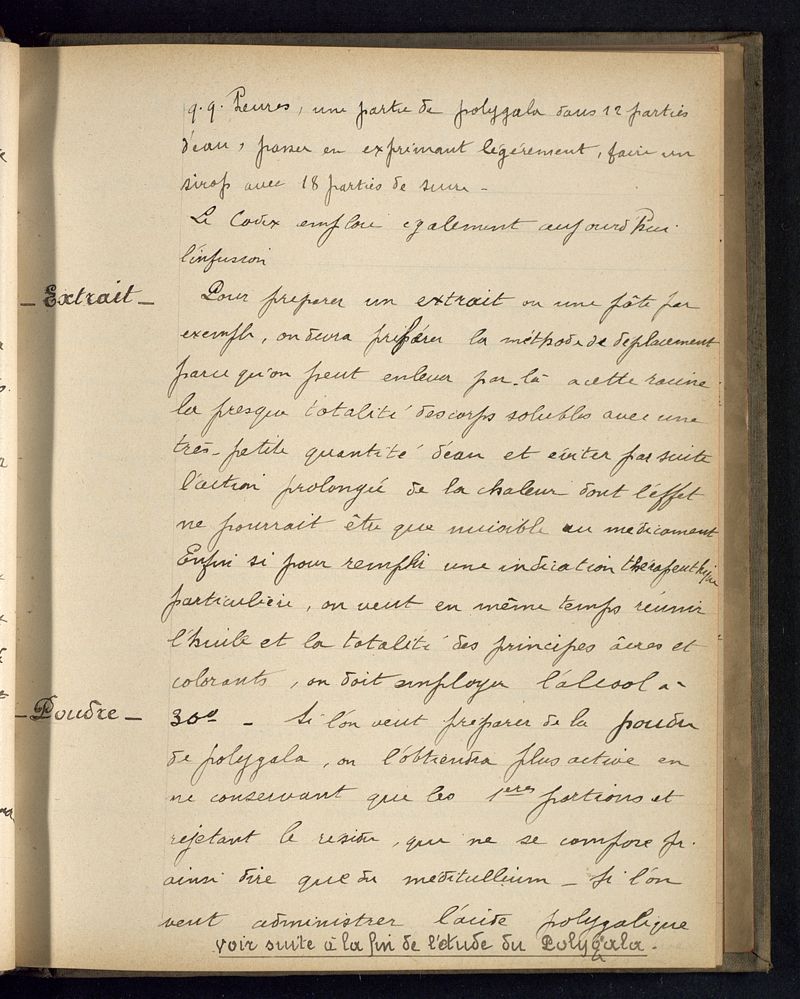 q.q. heures, une partie de polygala dans 12 parties
d'eau, passer en exprimant légèrement, faire un
sirop avec 18 parties de sucre -
Le Codex emploie également aujourd'hui
l'infusion
- Extrait -
Pour préparer un extrait ou une pâte par
exemple, on devra préférer la méthode de déplacement
parce qu'on peut enlever par là à cette racine
la presque totalité des corps solubles avec une
très-petite quantité d'eau et éviter par suite
l'action prolongée de la chaleur dont l'effet
ne pourrait être que nuisible au médicament
Enfin si pour remplir une indication thérapeuthique
particulière, on veut en même temps réunir
l'huile et la totalité des principes âcres et
colorants, on doit employer l'alcool à
- Poudre -
30° - Si l'on veut préparer de la poudre
de polygala, on l'obtiendra plus active en
ne conservant que les 1eres portions et
rejetant le résidu, qui ne se compose pr.
ainsi dire que du meditullium - Si l'on
veut administrer l'acide polygalique
voir suite à la fin de l'étude du Polygala.